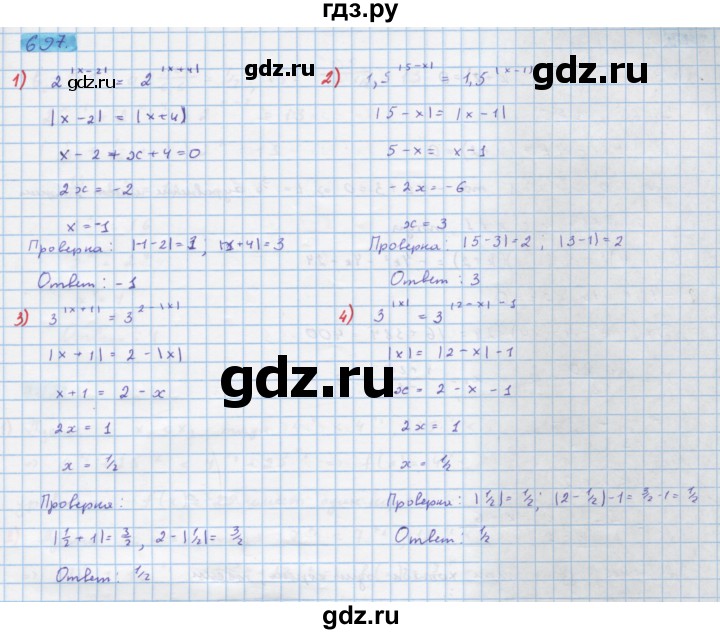 гдз.ру
697.
1) 2^|x-2| = 2^|x+4|
|x-2| = |x+4|
x-2+x+4=0
2x = -2
x = -1
Проверка: |-1-2|=3, |-1+4|=3
Ответ: -1
2) 1,5^|5-x| = 1,5^|x-1|
|5-x| = |x-1|
5-x = x-1
-2x = -6
x = 3
Проверка: |5-3|=2, |3-1|=2
Ответ: 3
3) 3^|x+1| = 3^2-|x|
|x+1| = 2-|x|
x+1 = 2-x
2x = 1
x = 1/2
Проверка:
|1/2+1|=3/2, 2-|1/2|=3/2
Ответ: 1/2
4) 3^|x| = 3^|2-x|-1
|x| = |2-x|-1
x = 2-x-1
2x = 1
x = 1/2
Проверка: |1/2|=1/2; |2-1/2|-1=3/2-1=1/2
Ответ: 1/2
gdz.ru
gdz.ru
gdz.ru